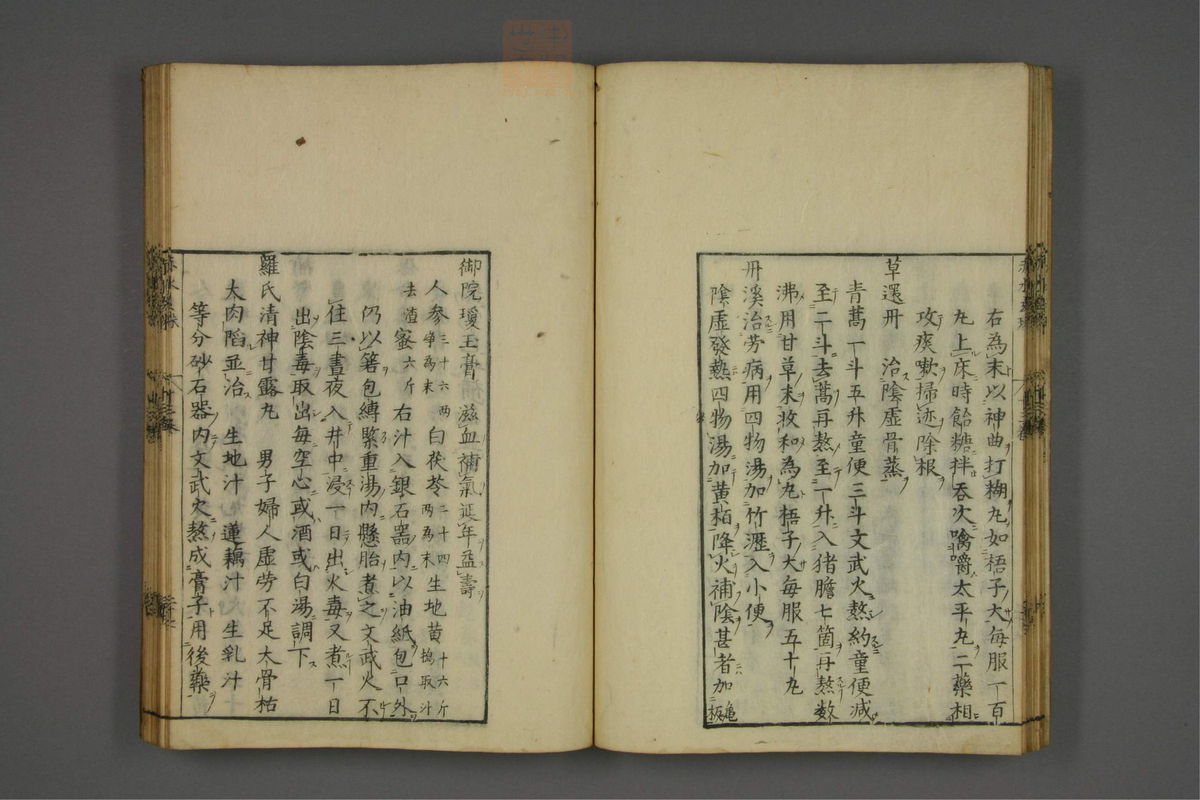 右為末以神曲打糊丸如梧子大每服一百
丸上床時飴糖拌吞次噙嚼太平丸二藥相
攻痰嗽掃迹除根
草還丹　治陰虛骨蒸
青蒿一斗五升童便三斗文武火熬約童便減
至二斗去蒿再熬至一升入猪膽七箇再熬數
沸用甘草末收和為丸梧子大每服五十丸
丹溪治劳病用四物湯加竹瀝入小便
陰虛發熱四物湯加黄栢降火補陰甚者加龜板
御院瓊玉膏　滋血補氣延年益壽
人参三十六两净為末白茯苓二十四两為末生地黄十六斤搗取汁
去渣蜜六斤右汁入銀石器内以油紙包口外
仍以箬包縛緊重湯内懸胎煮之文武火不
住三晝夜入井中浸一日出火毒又煮一日
出陰毒取出每空心或酒或白湯調下
羅氏清神甘露丸　男子婦人虛劳不足大骨枯
大肉陷並治　生地汁　蓮藕汁　生乳汁
等分砂石器内文武火熬成膏子用後藥